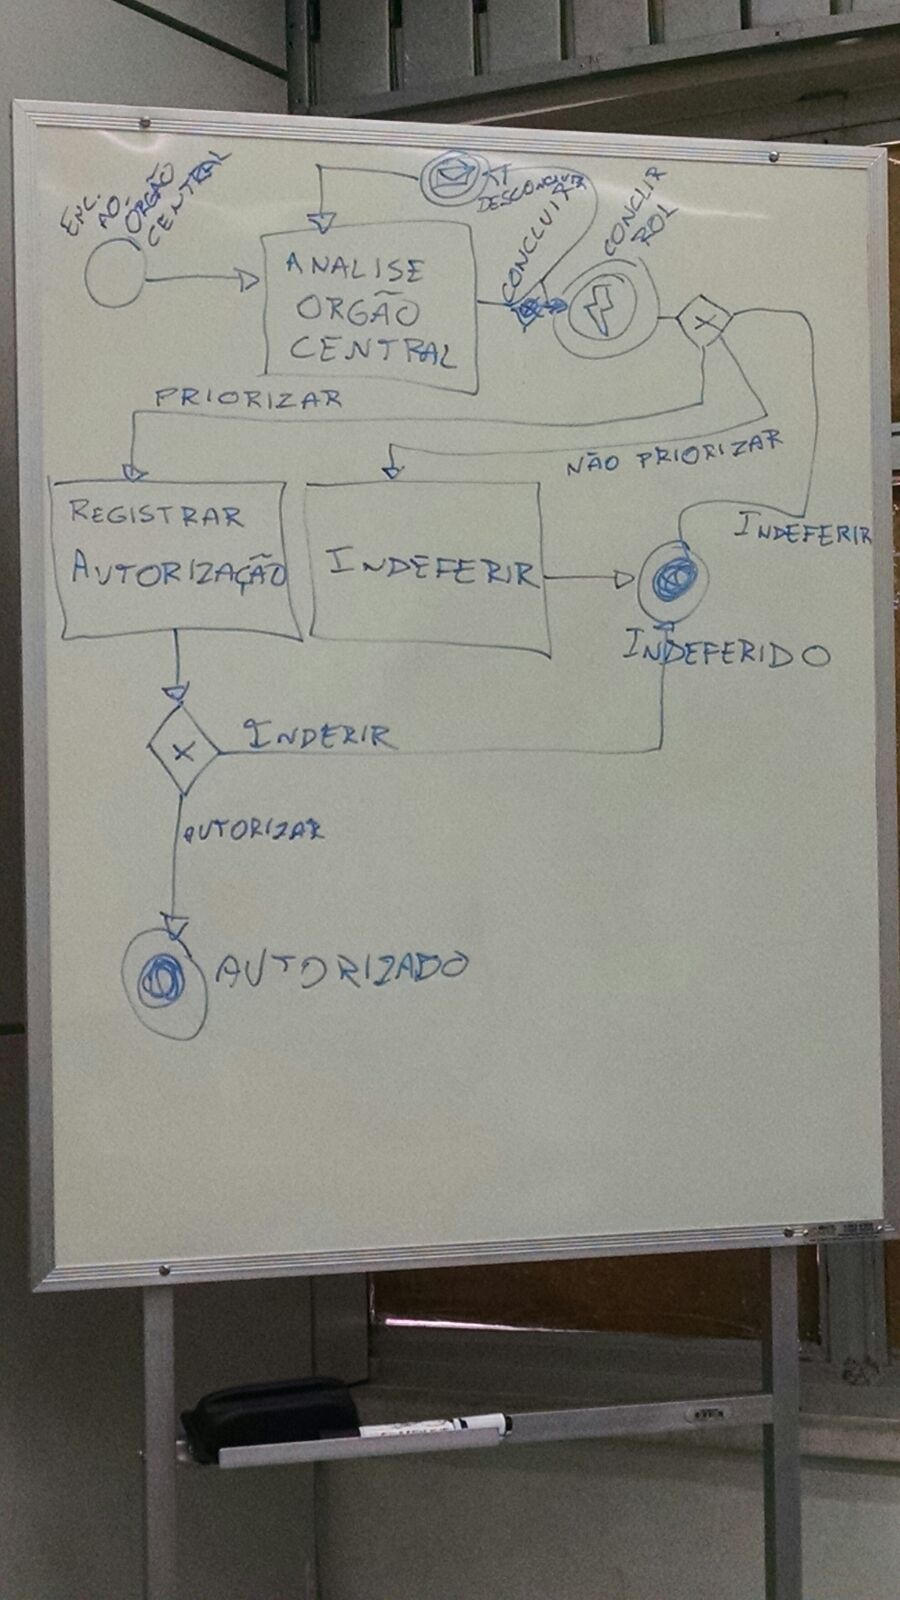 ENC.
AO.
ORGÃO
CENTRAL
DESCONCLUIR
CONCLUIR
CONCLIR
ROL
ANALISE
ORGÃO
CENTRAL
PRIORIZAR
NÃO PRIORIZAR
REGISTRAR
AUTORIZAÇÃO
INDEFERIR
INDEFERIR
INDEFERIDO
INDERIR
AUTORIZAR
AUTORIZADO